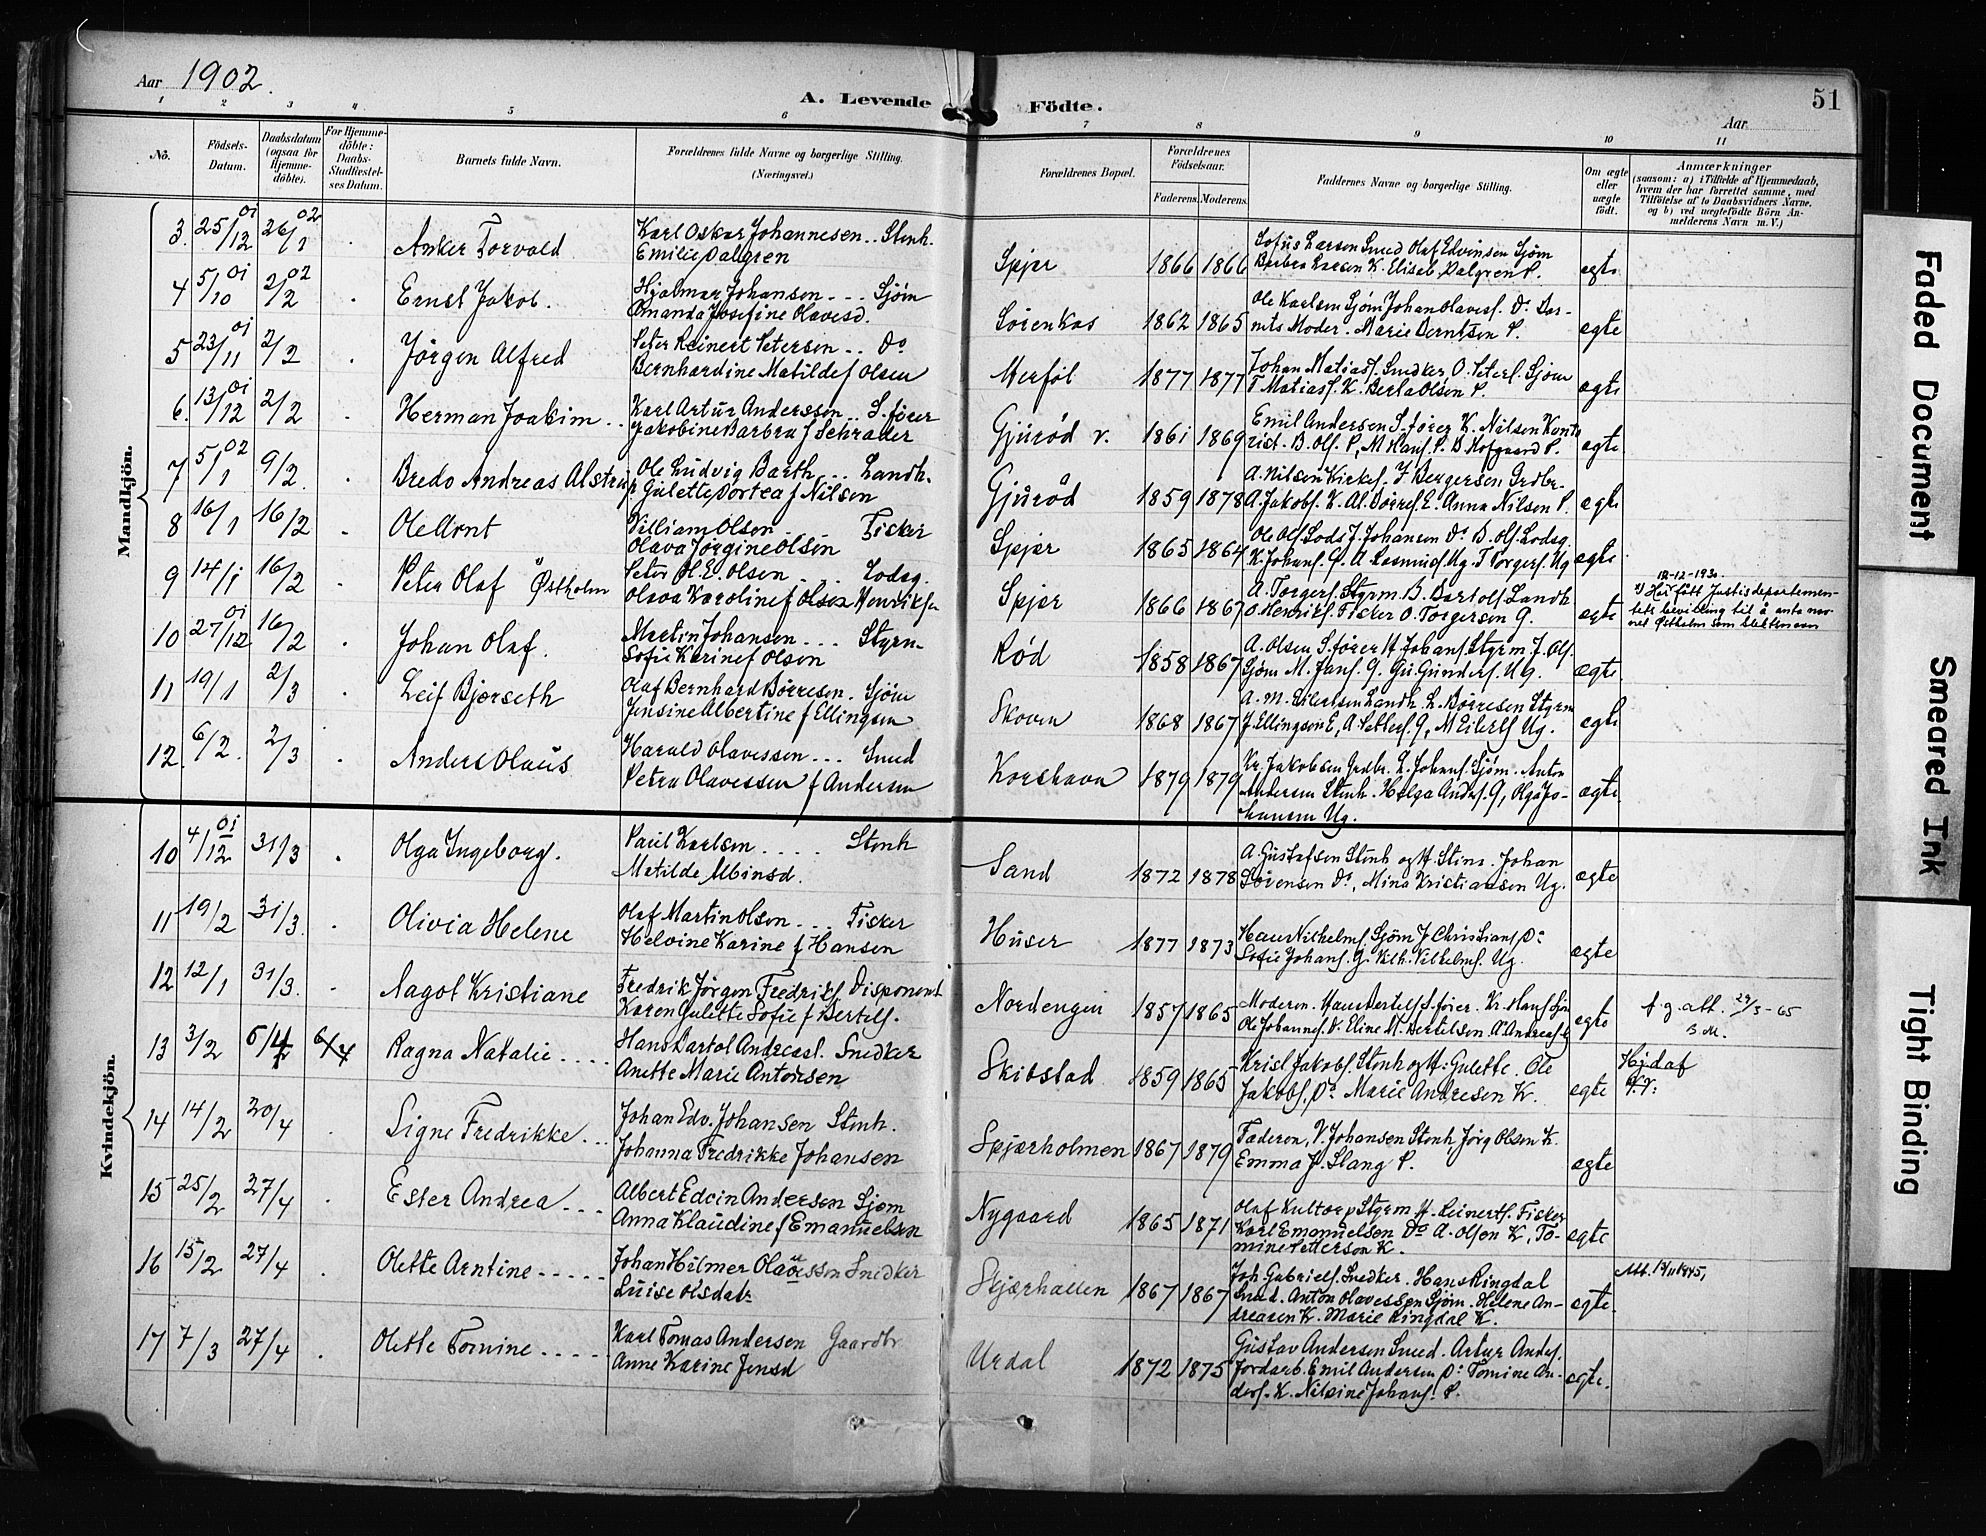 Aar 1902.
A. Levende Födte.
51
Aar
1 2 3 4 5 6 7 8 9 10 11
No.
Födsels-Datum.
Daabsdatum (ogsaa for Hjemme-döbte).
For Hjemme-döbte: Daabs-Stadfæstel-ses Datum.
Barnets fulde Navn.
Forældrenes fulde Navne og borgerlige Stilling. (Næringsvei.)
Forældrenes Bopæl.
Forældrenes Födselsaar.
Faderens. Moderens.
Faddernes Navne og borgerlige Stilling.
Om ægte eller uægte födt.
Anmærkninger
(saasom: a) i Tilfælde af Hjemmedaab, hvem der har forrettet samme, med Tilföielse af to Daabsvidners Navne. og b) ved uægtefödte Börn An-melderens Navn m. V.)
Mandkjön.
3. 25/12 01 26/1 02 Anker Torvald
Karl Oskar Johannesen .. Stenh.
Emilie Dalgren
Spjær 1866 1866
Sofus Larsen Smed Olaf Edvinsen Sjöm
Barbra Larsen K. Elisab. Dalgren P.
ægte
4 5/10 01 2/2 02 Ernst Jakob.
Hjalmar Johansen ... Sjöm
Amanda Josefine Olavesd.
Sörenkas 1862 1865
Ole Karlsen Sjöm Johan Olavesf. Do Bar-
nets Moder. Marie Berntsen P.
ægte
5 23/11 01 2/2 Jörgen Alfred
Peter Reinert Petersen .. Do
Bernhardine Matilde f Olsen
1877 1877
Johan Matiasf. Snedker O. Peterf. Sjöm
T Matiasf. K. Berta Olsen P.
ægte
6. 13/12 01 2/2 Herman Joakim ..
Karl Artur Anderssen .. S.förer
Jakobine Barbra f Schrader
Gjuröd v. 1861 1869
Emil Andersen S.förer K. Nilsen Konto
rist. B. Olf. P, M Hanf. P. B. Hofgaard P.
ægte
7 5/1 02 9/2. Bredo Andreas Alstrup
Ole Ludvig Barth ... Landh.
Gulette Dortea f Nilsen
Gjuröd 1859 1878
A. Nilsen Kirkes. J Bergersen Grdbr.
A. Jakobf. K. Al. Börres. E. Anna Nilsen P.
ægte
8 16/1 16/2 Ole Arnt
Villiam Olsen .. Fisker
Olava Jörgine Olsen
Spjær 1865 1864
Ole Olf Lods J. Johansen Do B. Olf. Lodsg.
ægte
9 14/1 16/2 Peter Olaf "Østholm
Peter Ol. E. Olsen ... Lodsg.
Olava Karoline f Olsen Henriksen
Spjær 1866 1867
A. Torgerf. Styrm. B. Bartolf. Landh
O. Henrikf. Fisker O. Torgersen G.
ægte
12-12-1930.
x) Har fått Justisdepartemen-
tets bevilling til å anta nav-
net Østholm som slektsnavn
10 27/12 01 16/2 Johan Olaf.
Martin Johansen ... Styrm.
Sofie Karine f Olsen
Röd 1858 1867
A. Olsen S.förer H Johanf. Styrm J. Olf.
Sjöm M. Janf. G. Gu. Gunderf. Ug.
ægte.
11 19/1 2/3 Leif Bjerseth
Olaf Bernhard Börresen. Sjöm
Jensine Albertine f Ellingsen
Skoven 1868 1867
A. M. Eilertsen Landh. L. Börresen Styrm
J. Ellingsen E, A. Petterf. G, M Eilertf. Ug.
ægte
12. 6/2. 2/3 Anders Olaüs
Harald Olavessen ... Smed
Petra Olavessen f Andersen
Korshavn 1879 1879
Kr. Jakobsen Grdbr. L. Johanf. Sjöm. Anton
Andersen Stenh. Helga Andf. G, Olga Jo-
hansen Ug.
ægte.
Kvindekjön.
10 4/12 01 31/3 Olga Ingeborg.
Paul Karlsen .... Stenh
Matilde Albinsd.
Sand 1872 1878
A. Gustafsen Stenh og H. Stine. Johan
Sörensen Do, Mina Kristiansen Ug.
ægte
11 19/2 31/3. Olivia Helene
Olaf Martin Olsen ... Fisker
Helvine Karine f Hansen
Huser 1877 1873
Hans Vilhelmf. Sjöm J Christianf. Do
Sofie Johanf. G. Vilh. Vilhelmf. Ug.
ægte
12 12/1 31/3. Aagot Kristiane
Fredrik Jörgen Fredrikf. Disponent
Karen Gulette Sofie f Bertelf.
Nordengen 1857 1865
Moderen. Hans Bertelf S.förer. Kr. Hanf Sjöm
Ole Johannef. V. Eline M. Bertelsen
ægte
f. g. att. 29/3-65
B.M.
13 3/2 6/4 6/4 Ragna Natalie ....
Hans Bartol Andreasf. Snedker
Anette Marie Antonsen
Skibstad 1859 1865
Krist Jakobf. Stenh og H: Gulette. Ole
Jakobf. Do Marie Andresen K.
ægte
Hj.d af
14 14/2 20/4 Signe Fredrikke ...
Johan Edv. Johansen Stenh.
Johanna Fredrikke Johansen
Spjærholmen 1867 1879
Faderen, V. Johansen Stenh, Jörg Olsen K.
Emma J. Slang P.
ægte
15 25/2 27/4 Ester Andrea ...
Albert Edvin Andersen Sjöm
Anna Klaudine f Emanuelsen
Nygaard 1865 1871
Olaf Kultorp Styrm H. Reinertf. Fisker
Karl Emanuelsen Do A. Olsen K, To-
mine Petterson K.
ægte
16 15/2 27/4 Olette Arntine .....
Johan Hilmer Olavessen Snedker
Luise Olsdatr
Skjærhallen 1867 1867
Joh Gabrielf. Snedker. Hans Ringdal
Smed. Anton Olavessen Sjöm. Helene An-
dreasen K. Marie Ringdal K.
ægte.
Att. 13/11 1945,
17 7/3 27/4 Olette Tomine .....
Karl Tomas Andersen Gaardbr
Anne Karine Jensd
Urdal 1872 1875
Gustav Andersen Smed. Artur Andf.
Jordarb. Emil Andersen Do Tomine An-
derf. K. Nilsine Johanf. P.
ægte.
Faded Document
Smeared Ink
Tight Binding